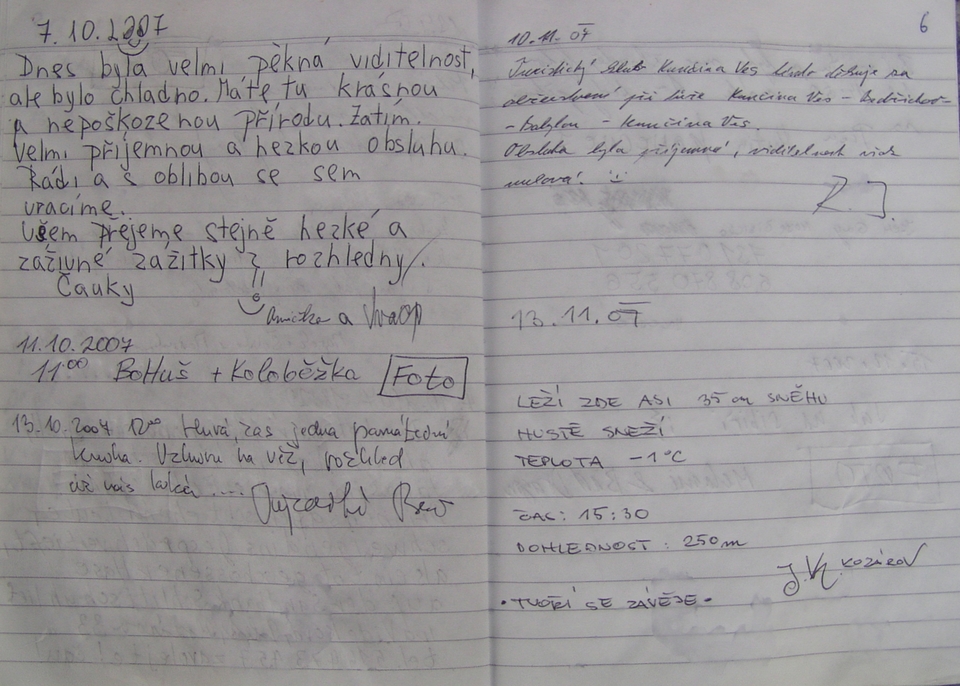 7.10.2007
Dnes byla velmi pěkná viditelnost,
ale bylo chladno. Máte tu krásnou
a nepoškozenou přírodu. Zatím.
Velmi příjemnou a hezkou obsluhu.
Rádi a s oblibou se sem
vracíme.
Všem přejeme stejně hezké a
záživné zážitky z rozhledny.
Čauky
a
11.10.2007
11:00 BoHuš + Koloběžka Foto
13.10.2007 zas jedna památeční
kniha. Vzhůru na věž, rozhled
už nás láká ....
6
10.11.07
Turistický klub Kunčina Ves
Kunčina Ves -
- Babylon - Kunčina Ves.
Obsluha byla příjemná, viditelnost však
nulová!
R. J.
13.11.07
LEŽÍ ZDE ASI 35 cm SNĚHU
HUSTĚ SNEŽÍ
TEPLOTA -1°C
ČAS: 15:30
DOHLEDNOST: 250m
KOZÁROV
• TVOŘÍ SE ZÁVĚJE •